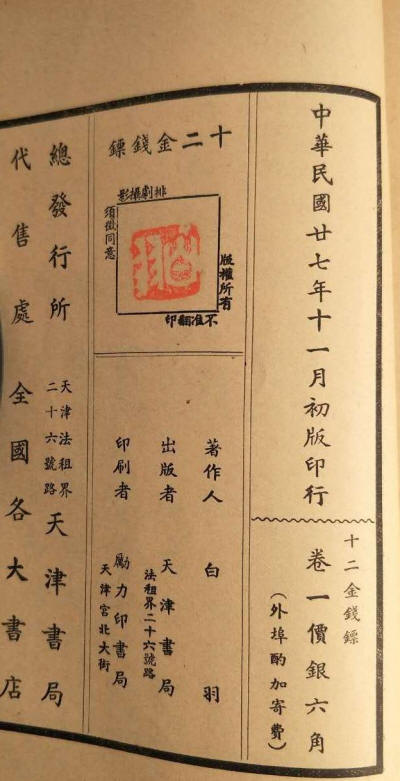 中華民國廿七年十一月初版印行
十二金錢鏢
卷一價銀六角
(外埠酌加寄費)
十二金錢鏢
版權所有
不准翻印
排劇攝影
須徵同意
著作人 白羽
出版者 天津書局
法租界二十六號路
印刷者 勵力印書局
天津宮北大街
總發行所 天津法租界
二十六號路 天津書局
代售處 全國各大書店